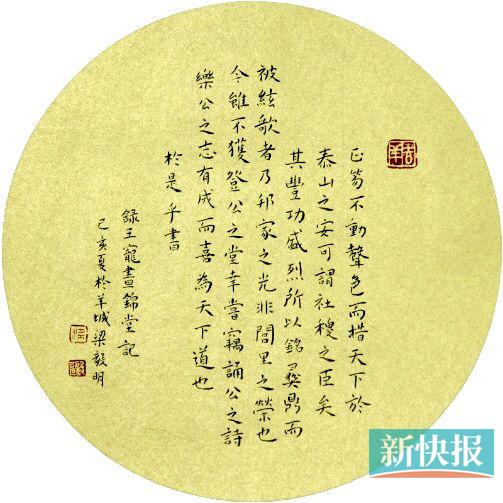 正笏不動聲色而措天下於
泰山之安可謂社稷之臣矣
其豐功盛烈所以銘彝鼎而
被絃歌者乃邦家之光非閭里之榮也
令雖不獲登公之堂幸嘗竊誦公之詩
樂公之志有成而喜為天下道也
於是乎書
錄王寵晝錦堂記
己亥夏於羊城梁毅明
新快报